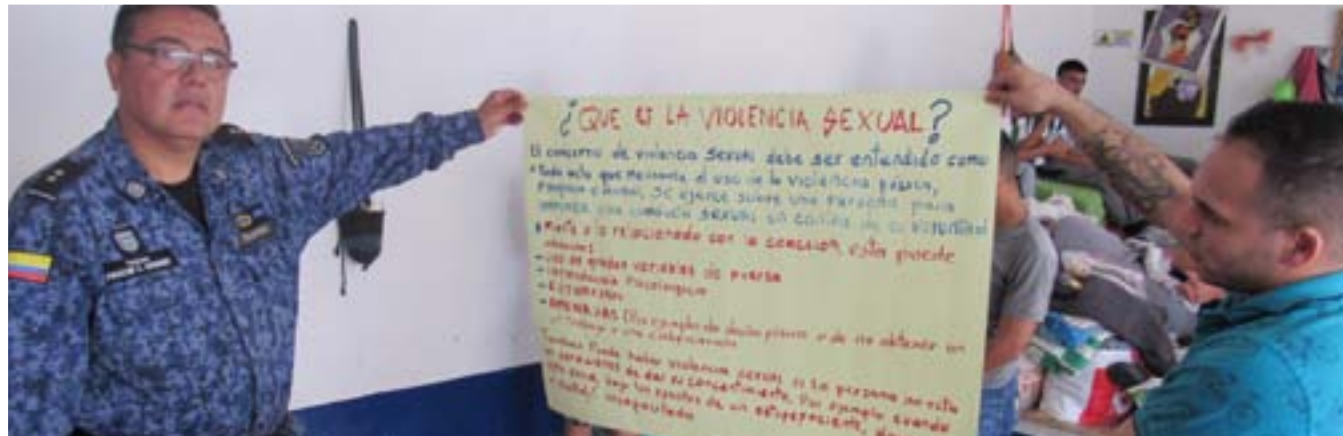 ¿QUE ES LA VIOLENCIA SEXUAL?
El concepto de violencia sexual debe ser entendido como
• Todo acto que mediante el uso de la violencia física,
psíquica o moral, se ejerce sobre una persona para
una conducta sexual en contra de su voluntad
relacionado con la coacción, esta puede
abarcar:
- Uso de grados variables de fuerza
- Intimidación Psicológica
- EXTORSION
- AMENAZAS (Por ejemplo de daño físico o de no obtener un
trabajo o una
También Puede haber violencia sexual si la persona no esta
en condiciones de dar su consentimiento, Por ejemplo cuando
bajo los efectos de un estupefaciente,
incapacitada